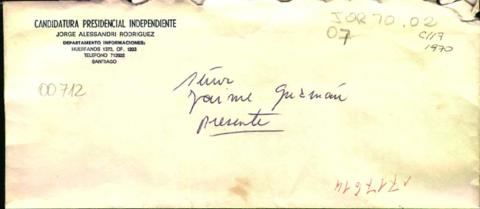 CANDIDATURA PRESIDENCIAL INDEPENDIENTE
JORGE ALESSANDRI RODRIGUEZ
DEPARTAMENTO INFORMACIONES:
HUERFANOS 1373, OF. 1203
TELEFONO 712922
SANTIAGO
JOR 70.02
07
C117
1970
00712
Señor
Jaime Guzmán
presente
717614